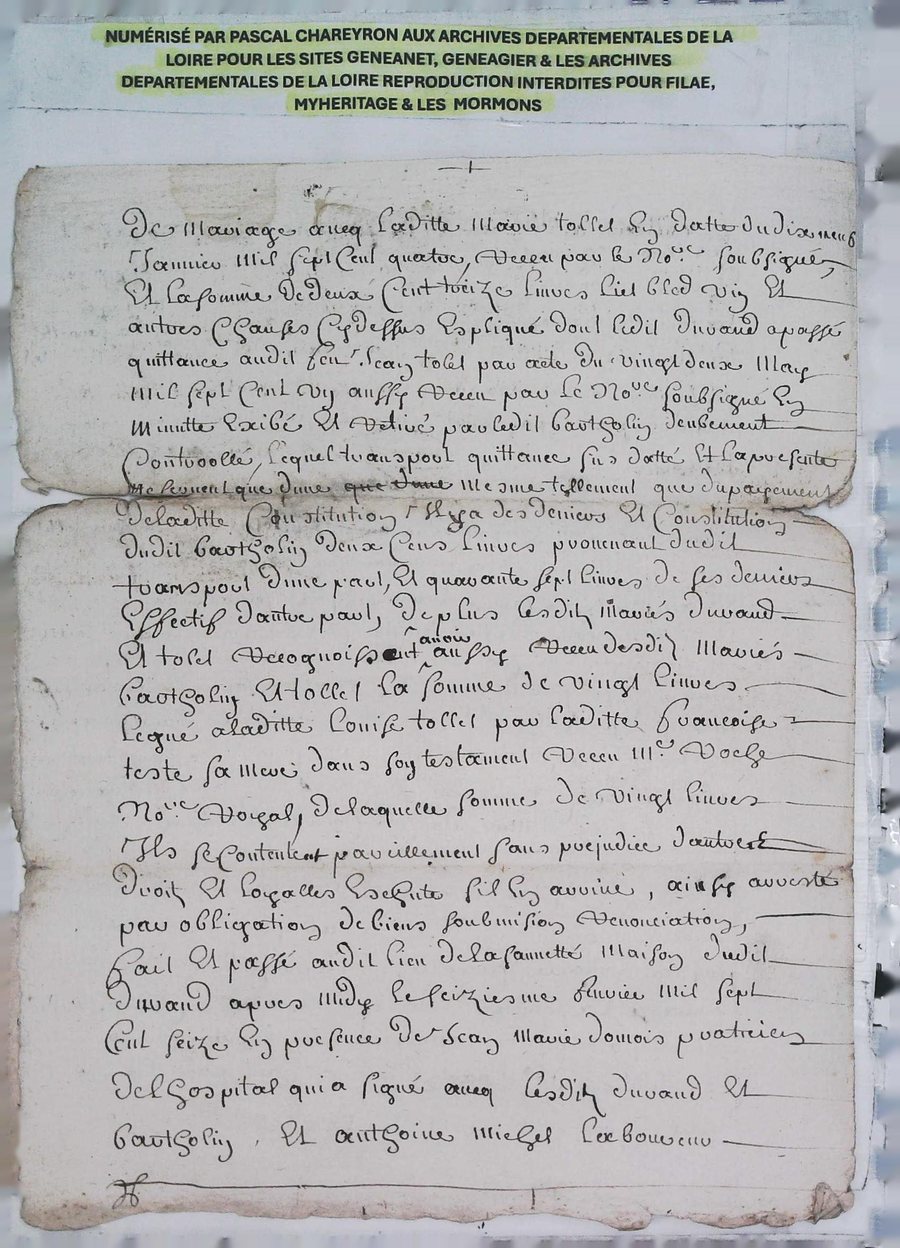 NUMÉRISÉ PAR PASCAL CHAREYRON AUX ARCHIVES DEPARTEMENTALES DE LA
LOIRE POUR LES SITES GENEANET, GENEAGIER & LES ARCHIVES
DEPARTEMENTALES DE LA LOIRE REPRODUCTION INTERDITES POUR FILAE,
MYHERITAGE & LES MORMONS
De mariage avecq Laditte Marie tollet En datte du dix neuf
Janvier mil sept Cent quatre, Receu par le No.re soubsigné,
Et la somme de deux Cent treize livres lict bled vin Et
autres Chauses Cy dessus Expliqué dont ledit durand a passé
quittance audit feu Jean tolet par acte du vingt deux May
mil sept Cent un aussy Receu par Le No.re soubsigné En
minutte Exibé Et Retiré par ledit bartholin deubement
Controollé, Lequel transport quittance sus datté Et la presente
ne servent que dune que dune mesme tellement que du payement
de laditte Constitution Il y a des deniers Et Constitution
dudit bartholin deux Cens livres provenant dudit
transport dune part, Et quarante sept livres de ses deniers
Effectif dautre part, De plus Lesdits mariés durand
Et tolet Recognoissent avoir aussy Receu desdits mariés
bartholin Et tollet La somme de vingt livres
Legué a laditte Louise tollet par laditte francoise
teste sa mere dans son testament Receu M.e Roche
No.re Royal, de laquelle somme de vingt livres
Ils se Contentent pareillement sans prejudice dautres
droits Et Loyalles Escheute sil En arrive, ainsy arresté
par obligation de biens soubmision Renonciation,
fait Et passé audit lieu de la sannetté maison dudit
durand apres midy le seiziesme febvrier mil sept
Cent seize En presence de S.r Jean marie domois praticien
de Lhospital qui a signé avecq Lesdits durand Et
bartholin, Et anthoine michel Laboureur